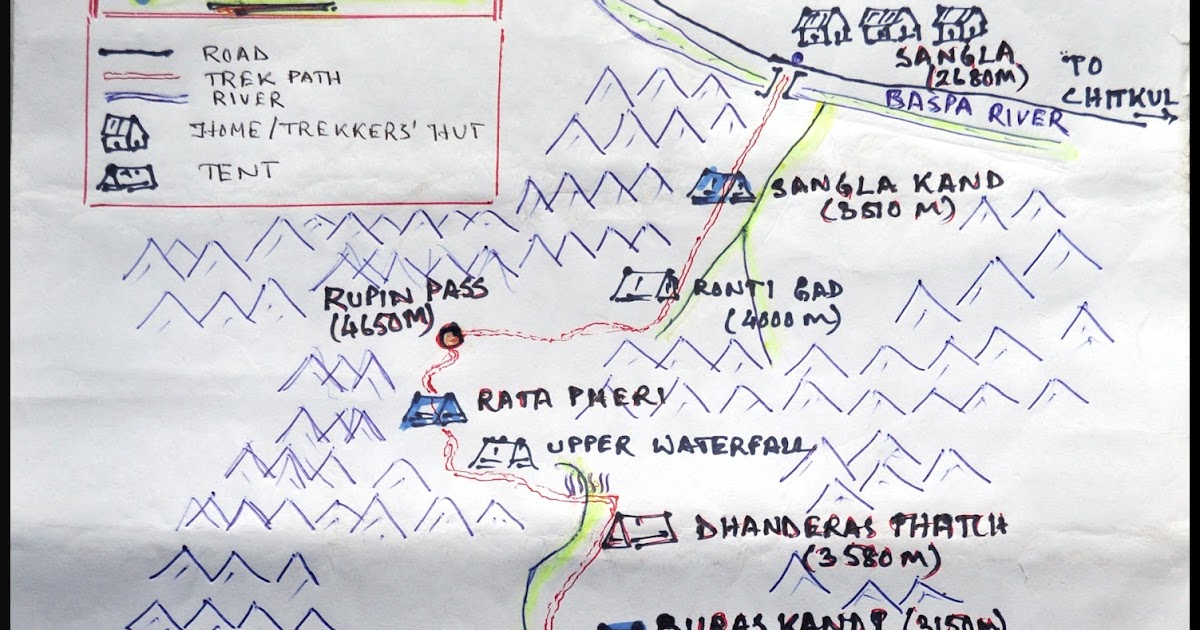 ROAD
TREK PATH
RIVER
HOME/TREKKERS' HUT
TENT
SANGLA
(2680M)
TO
CHITKUL
BASPA RIVER
SANGLA KAND
(3510 M)
RONTI GAD
(4000 M)
RUPIN PASS
(4650M)
RATA PHERI
UPPER WATERFALL
DHANDERAS PHATCH
(3580M)
BURAS KANDI (3150M)